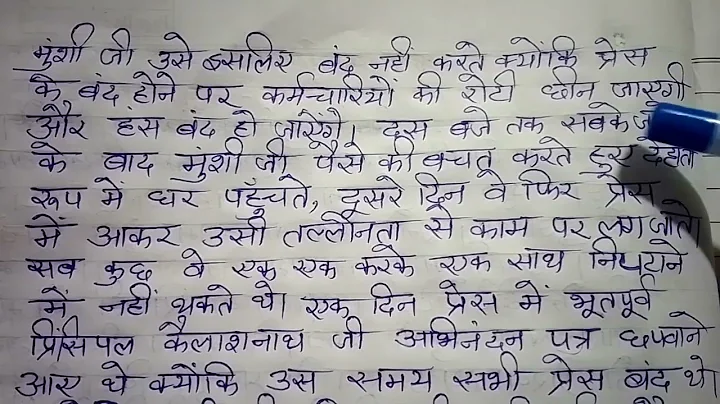 मुंशी जी उसे इसलिए बंद नहीं करते क्योंकि प्रेस
के बंद होने पर कर्मचारियों की रोटी छीन जाएगी
और हंस बंद हो जाएंगे। दस बजे तक सबके
के बाद मुंशी जी पैसे की बचत करते हुए देहाती
रूप में घर पहुँचते, दूसरे दिन वे फिर प्रेस
में आकर उसी तल्लीनता से काम पर लग जाते
सब कुछ वे एक एक करके एक साथ निपटाने
में नहीं थकते थे। एक दिन प्रेस में भूतपूर्व
प्रिंसिपल कैलाशनाथ जी अभिनंदन पत्र छपवाने
आए थे क्योंकि उस समय सभी प्रेस बंद थे